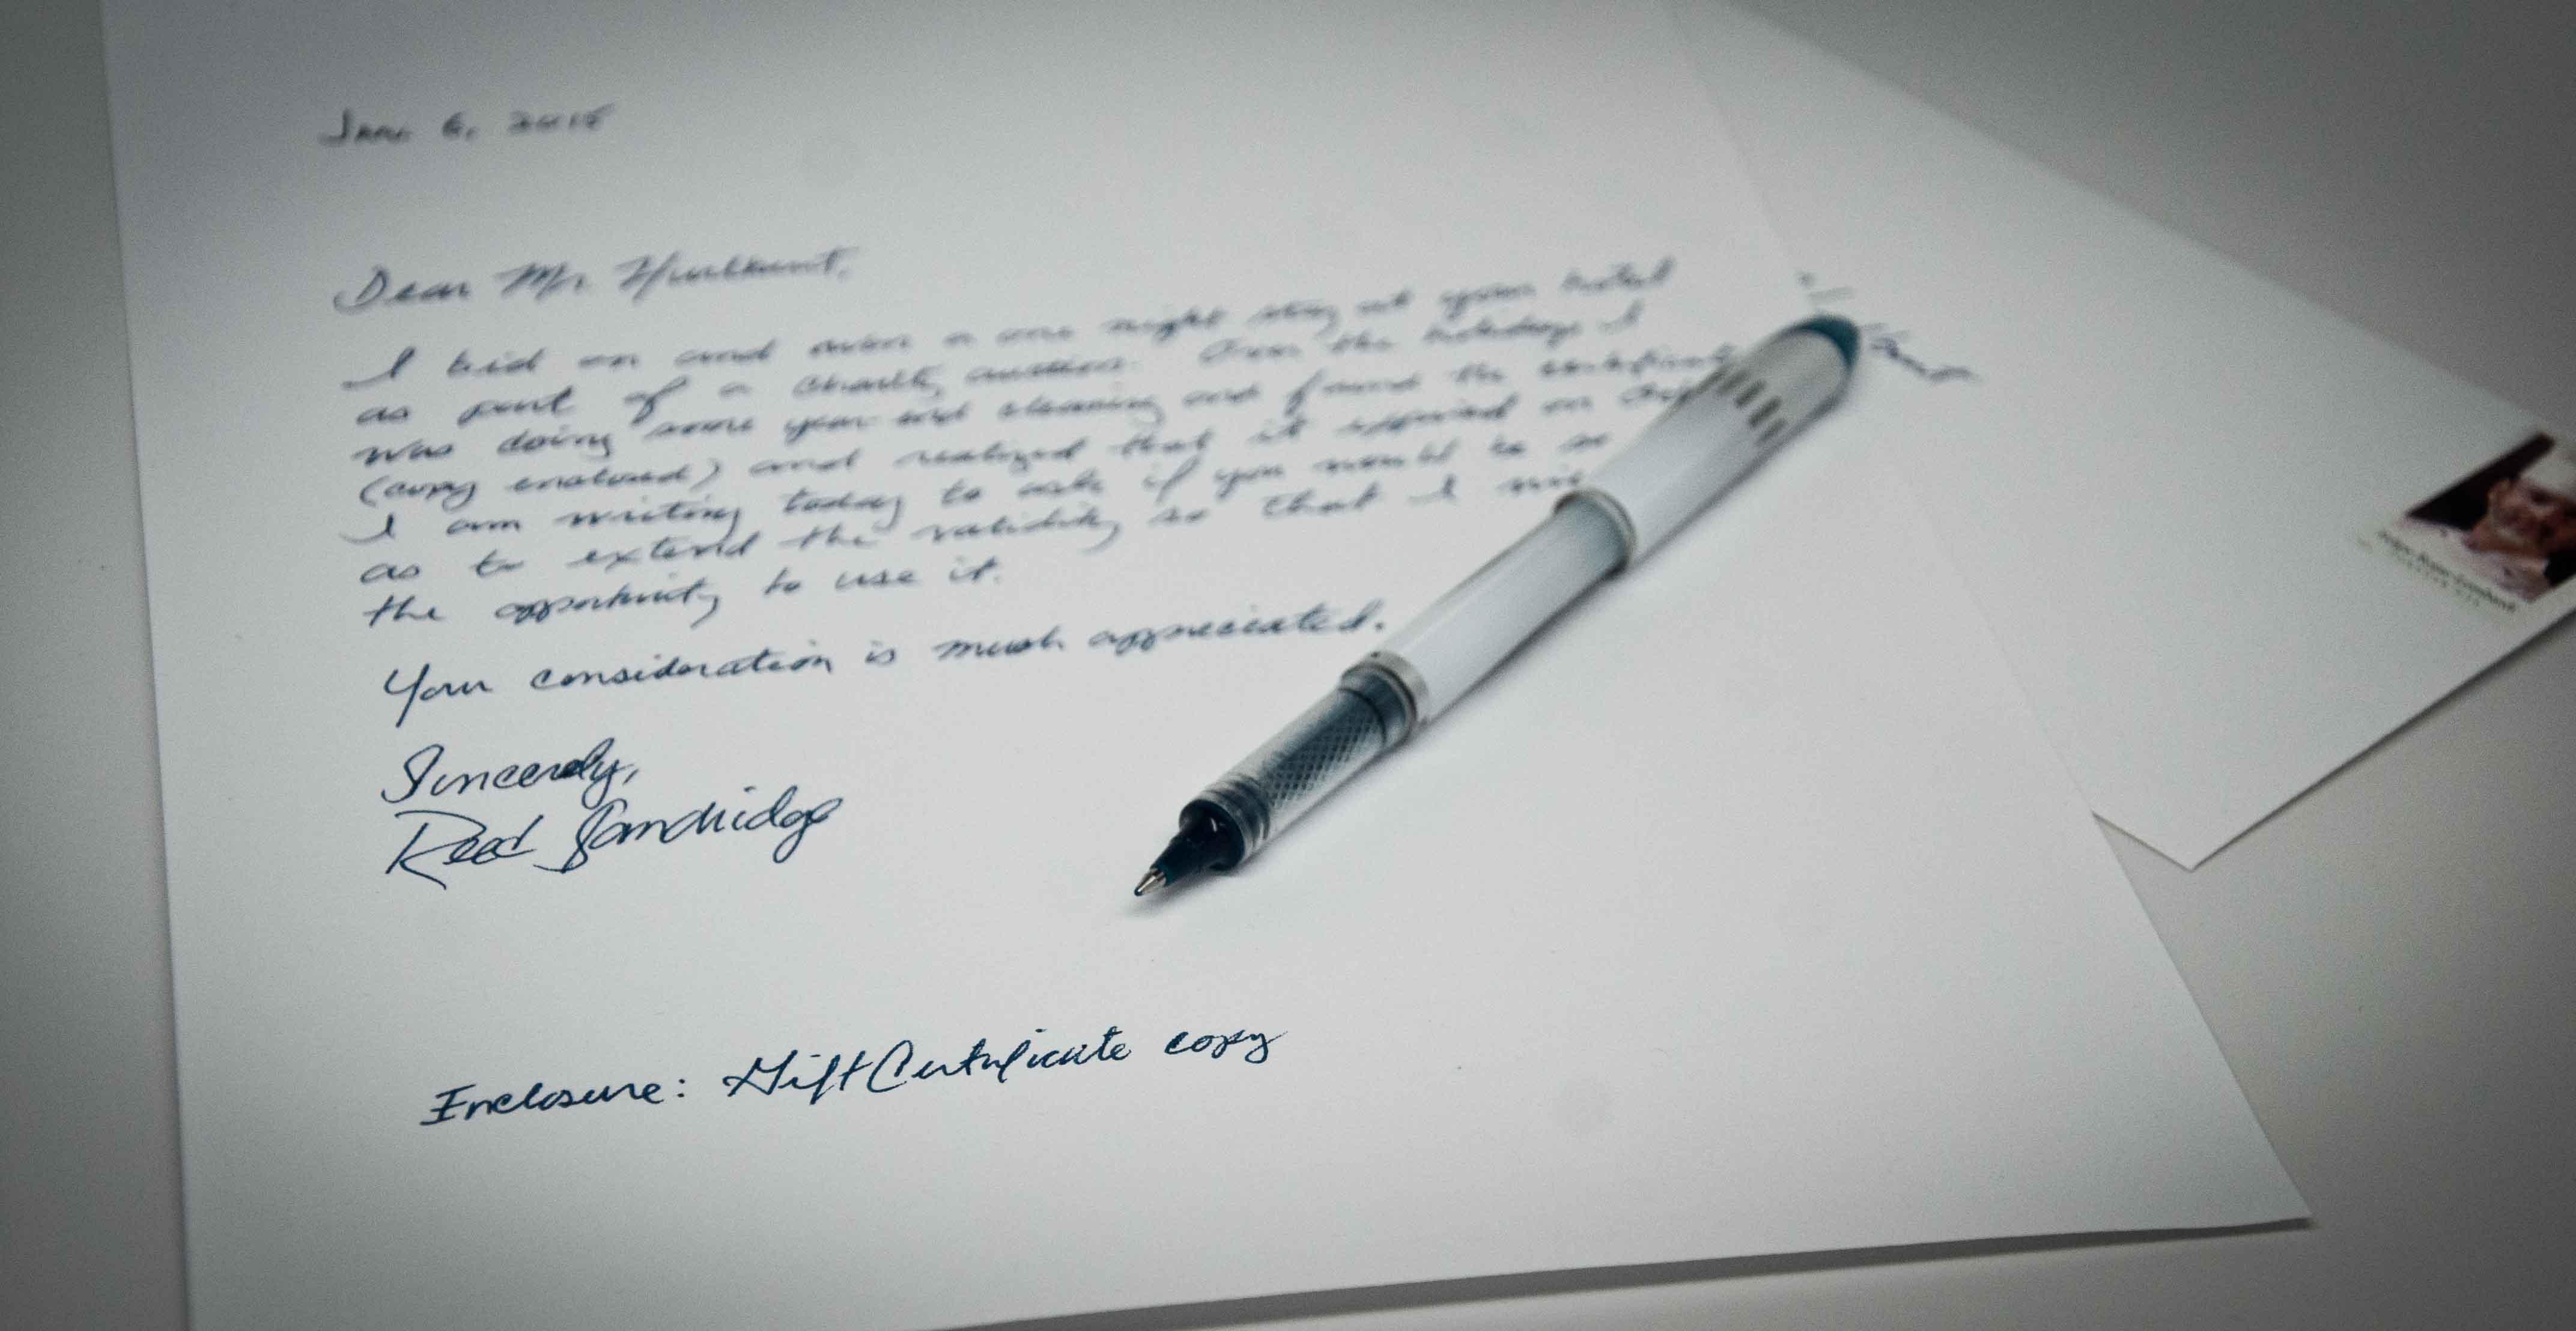 Jan 6, 2015
Dear Mr.
I bid on and won a one night stay at your hotel
as part of a charity auction. Over the holidays I
was doing some year end cleaning and found the certificate
(copy enclosed) and realized that it expired on Oct
I am writing today to ask if you would be so
as to extend the validity so that I
the opportunity to use it.
Your consideration is much appreciated.
Sincerely,
Reed Sandridge
Enclosure: Gift Certificate copy